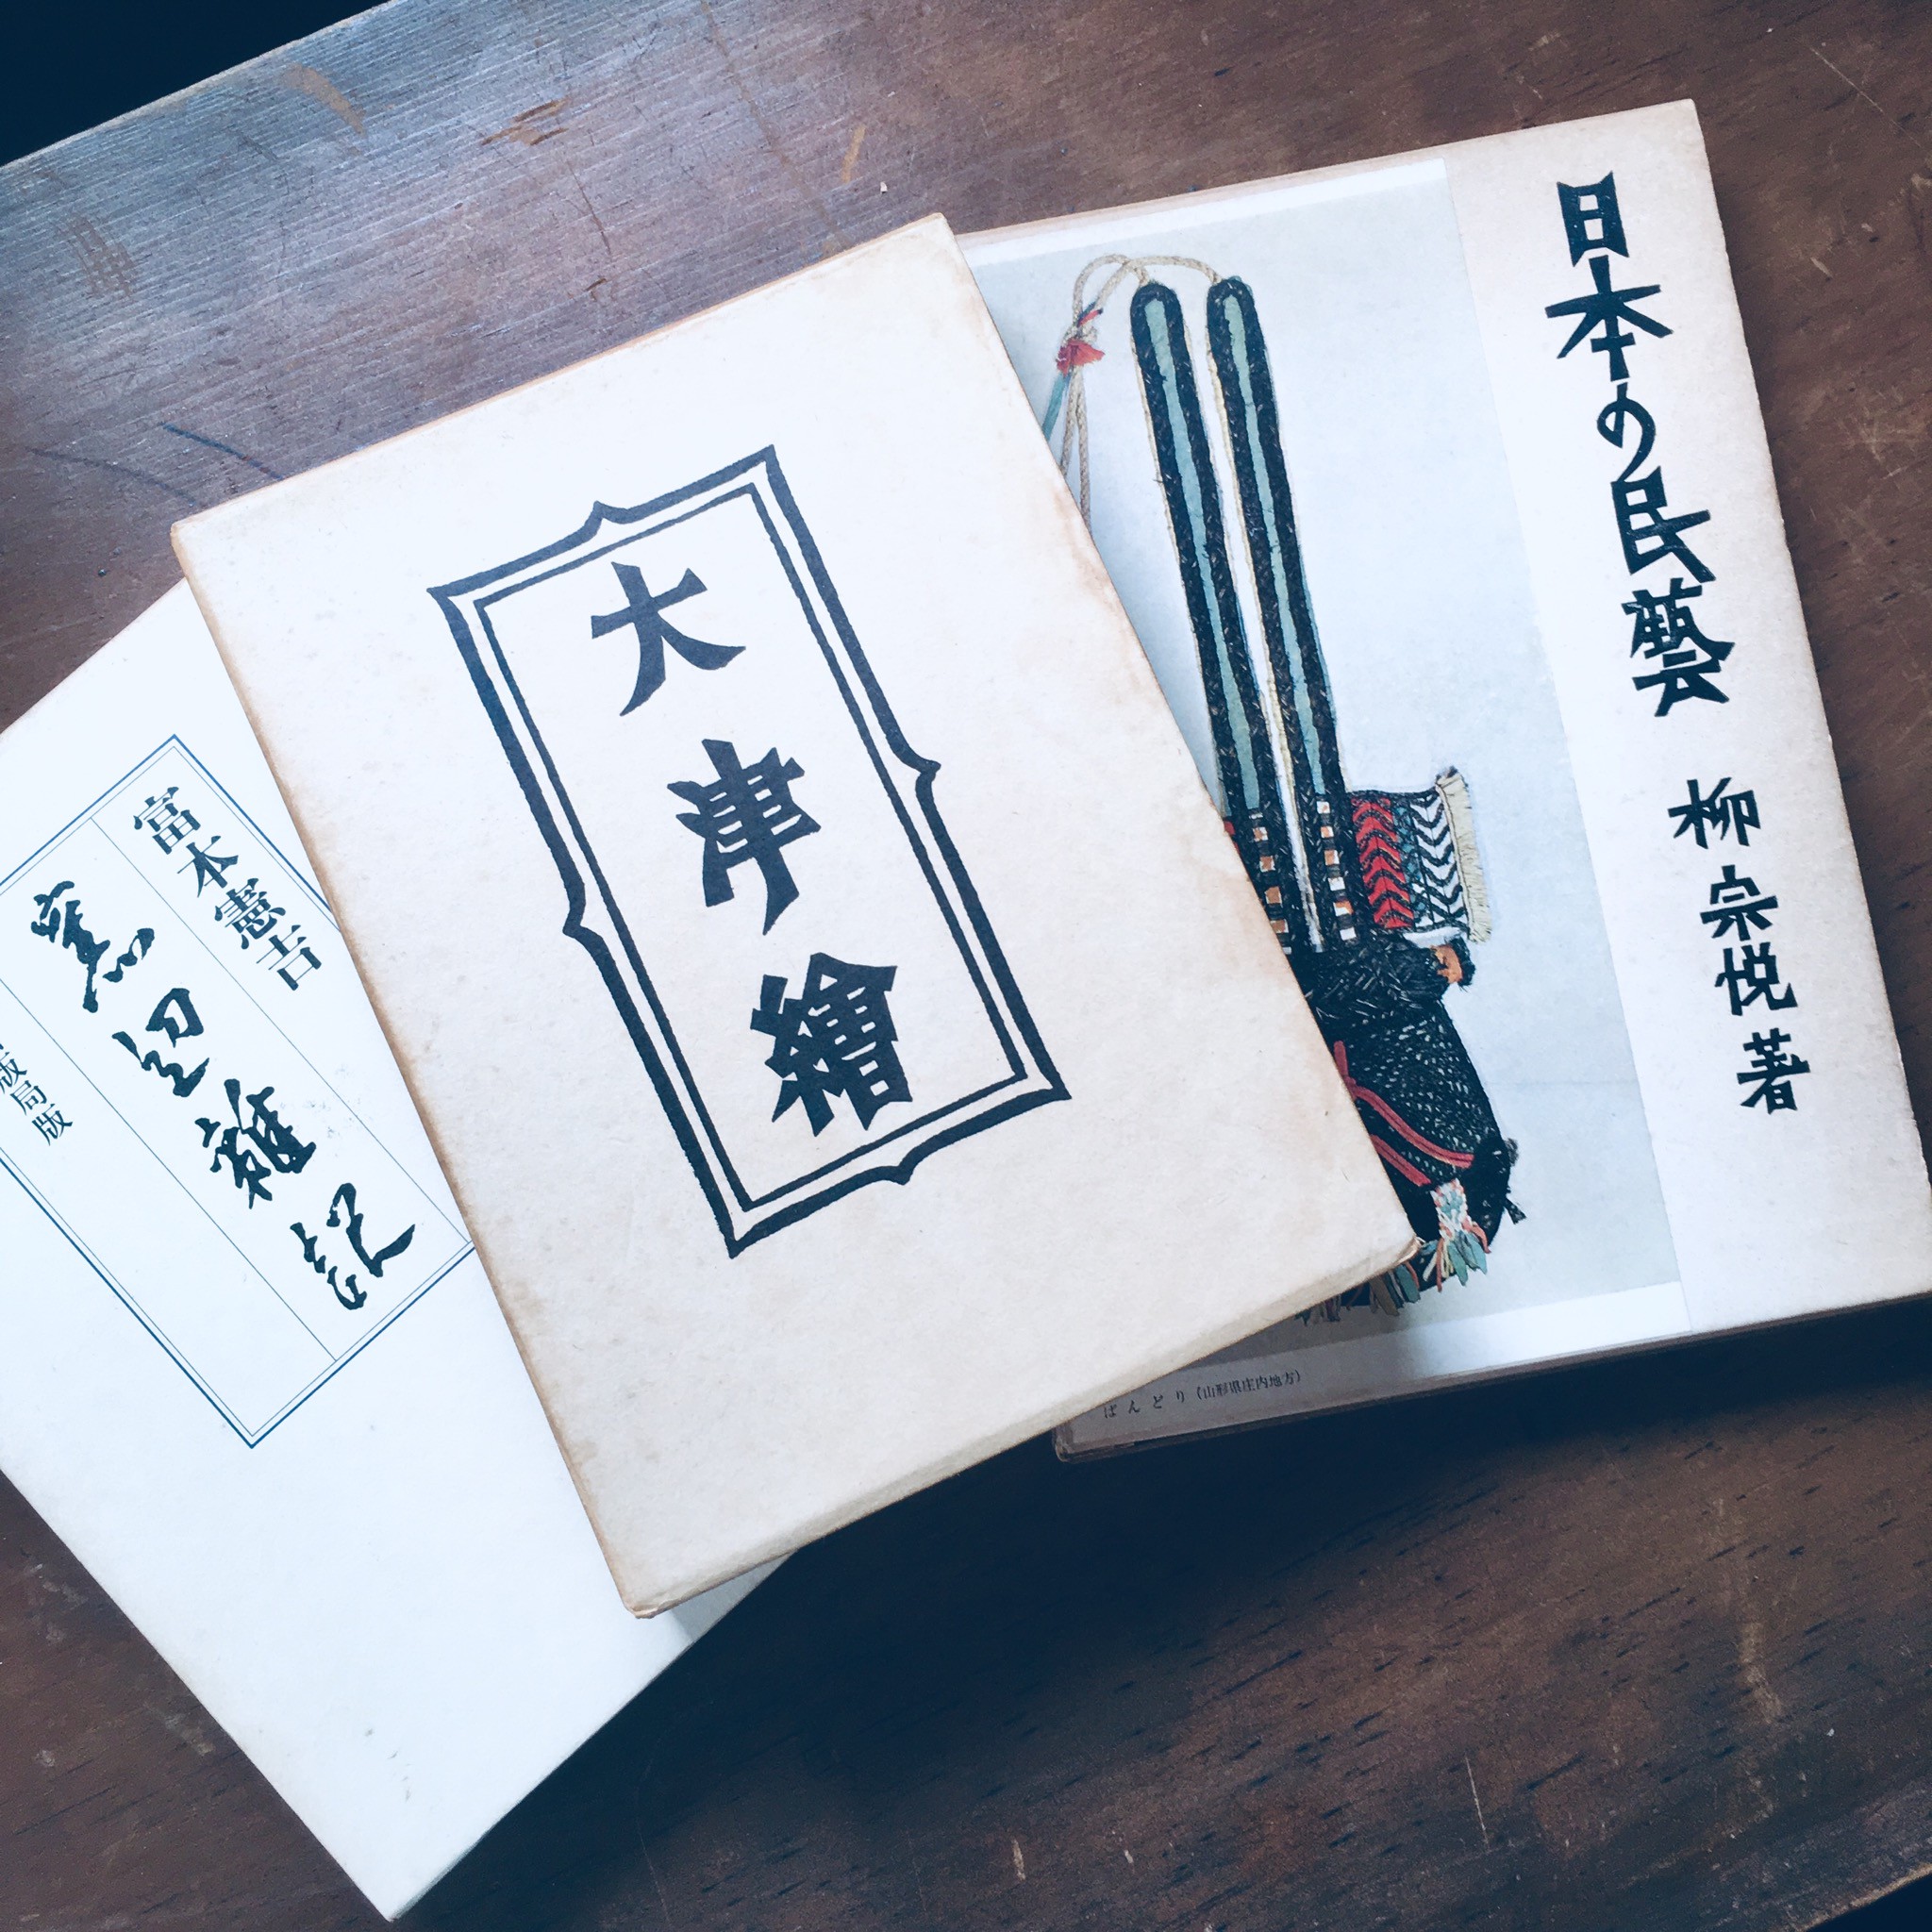 日本の民藝
柳宗悦著
ばんどり（山形県庄内地方）
大津繪
富本憲吉
窯辺雜記
版局版